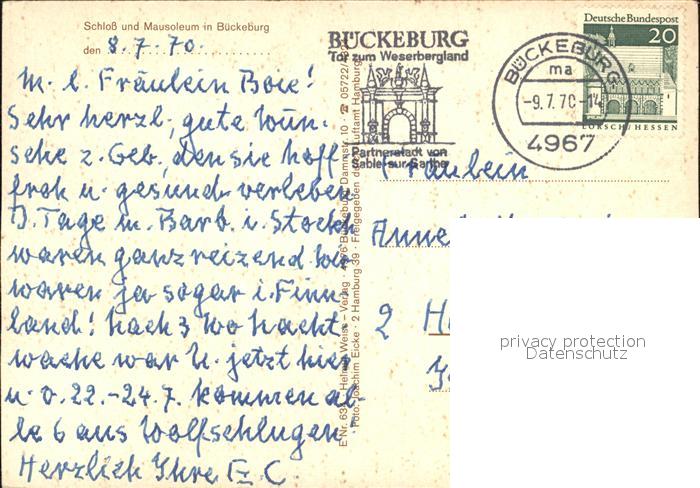 Schloß und Mausoleum in Bückeburg
den 8.7.70.
M. l. Fräulein Boie!
Sehr herzl, gute Wün-
sche z. Geb, den sie hoff
froh u. gesund verleben.
D. Tage m. Barb. i. Stockh
waren ganz reizend. Wir
waren ja sogar i. Finn
land! Nach 3 Wo
wache war h. jetzt hier
u. v. 22.-24.7. kommen al-
le 6 aus Wolfschlugen.
Herzlich Ihre E. C.
E Nr. Helmut Weiss - Verlag Bückeburg Dammstr. 10 ☎ 05722/
Foto: Joachim Eicke · 2 Hamburg 39 · Freigegeben Luftamt Hamburg
BÜCKEBURG
Tor zum Weserbergland
Partnerstadt von
Sablé-sur-Sarthe
BÜCKEBURG
ma
-9.7.70-14
4967
Deutsche Bundespost
20
LORSCH/HESSEN
Fräulein
2 H
privacy protection
Datenschutz